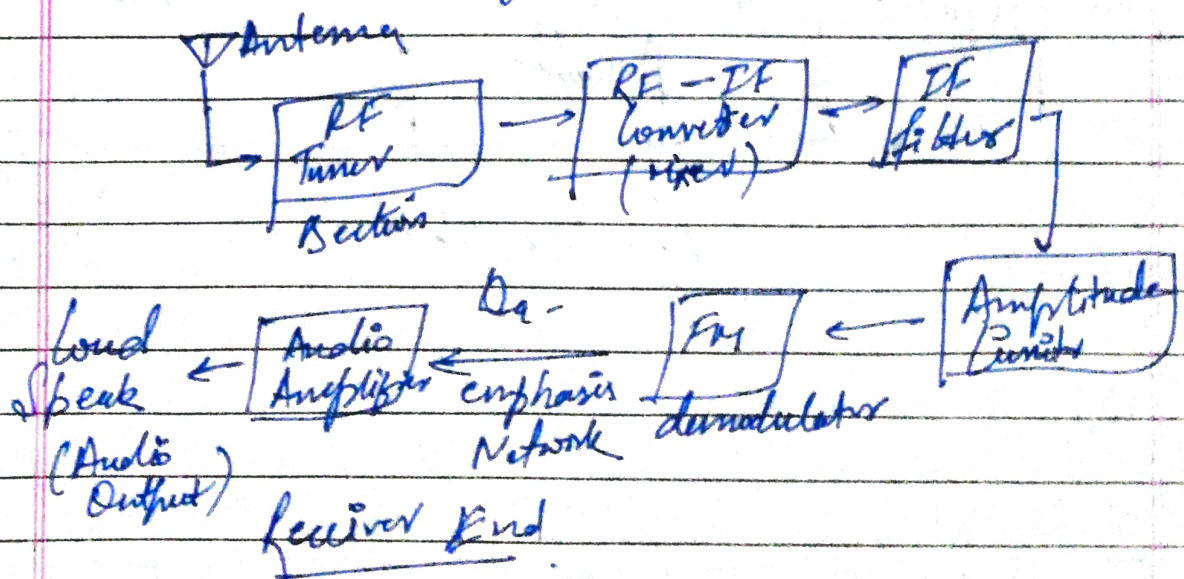 Antenna
RF
Tuner
Section
RF - IF
Converter
(mixer)
IF
filter
Amplitude
Limiter
FM
demodulator
De-
emphasis
Network
Audio
Amplifier
Loud
Speak
(Audio
Output)
Receiver End